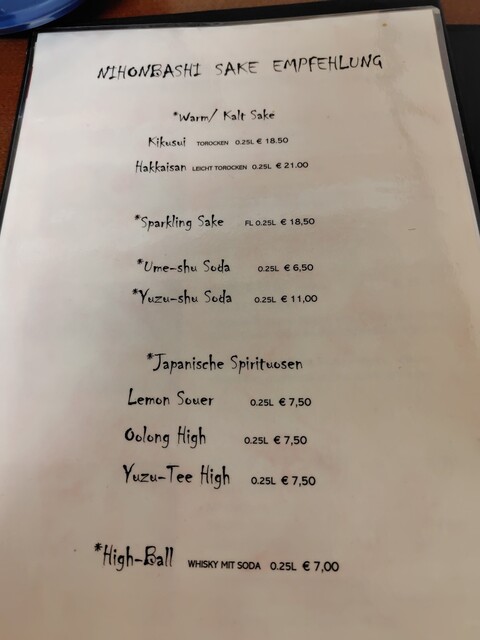 NIHONBASHI SAKE EMPFEHLUNG
*Warm/ Kalt Sake
Kikusui TOROCKEN 0.25L € 18.50
Hakkaisan LEICHT TOROCKEN 0.25L € 21.00
*Sparkling Sake FL 0.25L € 18,50
*Ume-shu Soda 0.25L € 6,50
*Yuzu-shu Soda 0.25L € 11,00
*Japanische Spirituosen
Lemon Souer 0.25L € 7,50
Oolong High 0.25L € 7,50
Yuzu-Tee High 0.25L € 7,50
*High-Ball WHISKY MIT SODA 0.25L € 7,00